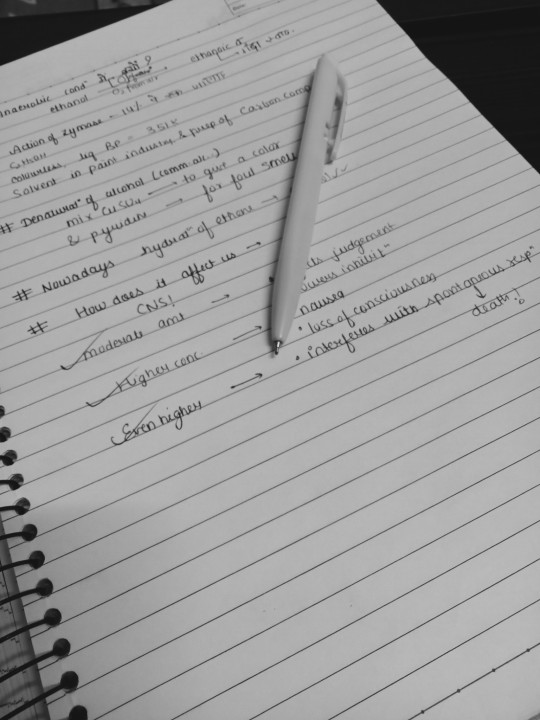 Anaerobic condⁿ में ?
ethanol ethanoic a
Action of zymase - 14%
colourless, liq BP = 351K
Solvent in paint industry & prep of Carbon comp
# Denaturatⁿ of alcohol (comm. alc.)
mix CuSO4 → to give a color
& pyridine → for foul smell
# Nowadays hydratⁿ of ethene →
# How does it affect us →
CNS!
moderate amt → judgement
lowers inhibitⁿ
Higher conc. → nausea
• loss of consciousness
Even higher → • interferes with spontaneous respⁿ
↓
death!